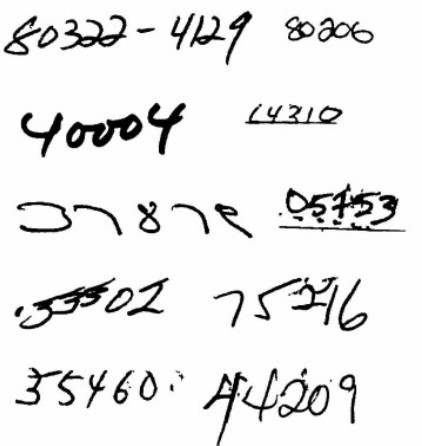 80322-4129 80206
40004 14310
37878 05753
.33502 75216
35460. 44209